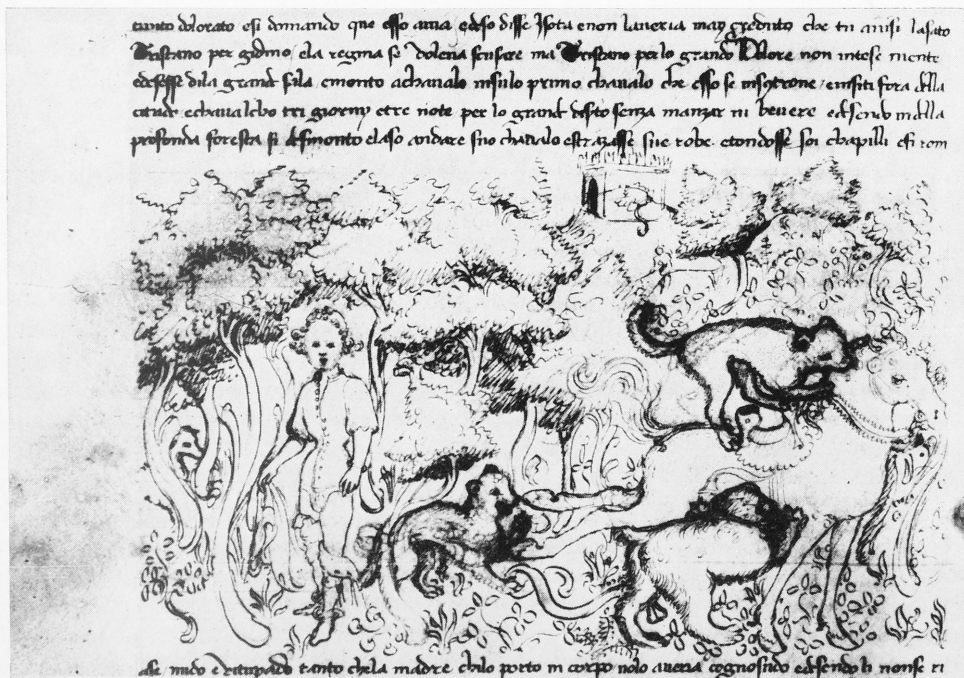 tanto dolorato esi domando que esso avia edeso disse Isota enon laveria may creduto che tu avisi lasato
Tristano per gidino ela regina se voleva scusare ma Tristano per lo grando Dolore non intese niente
edesesse dila grand sala emonto achavalo insulo primo chavalo che esso se insctrone, ensiti fora della
citade echavalcho tri giorny etre note per lo grande desito senza manzar ni bevere edesendo in della
profonda foresta si desmonto elaso andare suo chavalo estrazasse sue robe. etondosse soi chapilli esi rom
ase, nudo e ditupado tanto chela madre chilo porto in corpo nolo averia cognosudo edesendo li nonse ri